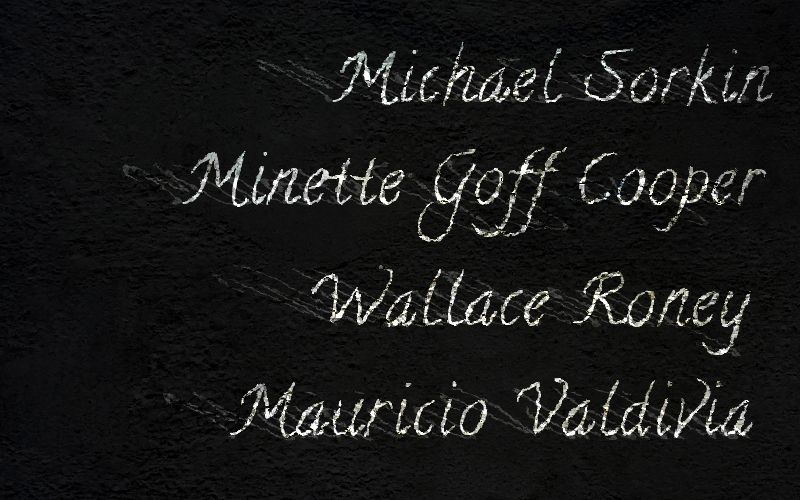 Michael Sorkin
Minette Goff Cooper
Wallace Roney
Mauricio Valdivia